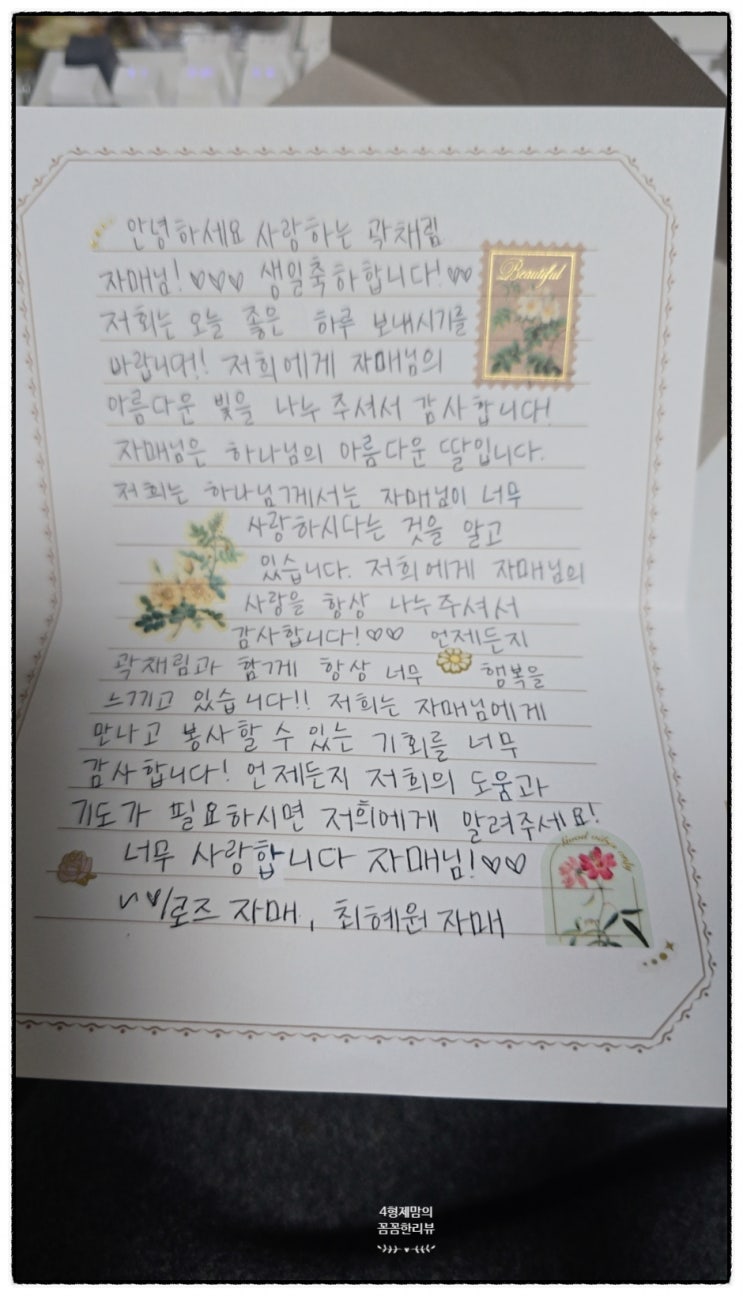 안녕하세요 사랑하는 곽채림
자매님! ♡♡♡ 생일축하합니다! ♡♡
Beautiful
저희는 오늘 좋은 하루 보내시기를
바랍니다!! 저희에게 자매님의
아름다운 빛을 나누 주셔서 감사합니다!
자매님은 하나님의 아름다운 딸입니다.
저희는 하나님께서는 자매님이 너무
사랑하시다는 것을 알고
있습니다. 저희에게 자매님의
사랑을 항상 나누주셔서
감사합니다! ♡♡ 언제든지
곽채림과 함께 항상 너무 행복을
느끼고 있습니다!! 저희는 자매님에게
만나고 봉사할 수 있는 기회를 너무
감사합니다! 언제든지 저희의 도움과
기도가 필요하시면 저희에게 알려주세요!
너무 사랑합니다 자매님! ♡♡
로즈 자매, 최혜원 자매
4형제맘의
꼼꼼한리뷰